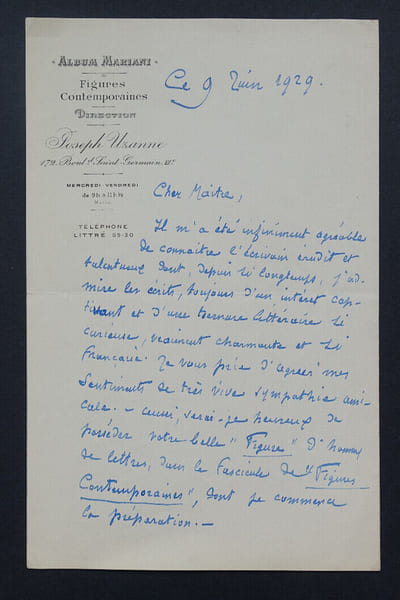 ALBUM MARIANI
Figures
Contemporaines
DIRECTION
Joseph Uzanne
172, Boul.d Saint-Germain, VI.e
MERCREDI VENDREDI
de 9h à 11h ½
Matin
TÉLÉPHONE
LITTRÉ 55-20
Ce 9 Juin 1929.
Cher Maître,
Il m'a été infiniment agréable
de connaître l'écrivain érudit et
talentueux dont, depuis si longtemps, j'ad-
mire les écrits, toujours d'un intérêt cap-
tivant et d'une tenue littéraire si
curieuse, vraiment charmante et si
Française. Je vous prie d'agréer mes
Sentiments de très vive sympathie ami-
cale. — aussi, serai-je heureux de
posséder votre belle "Figure" d'homme
de lettres, dans le Fascicule de "Figures
Contemporaines", dont je commence
la préparation. —